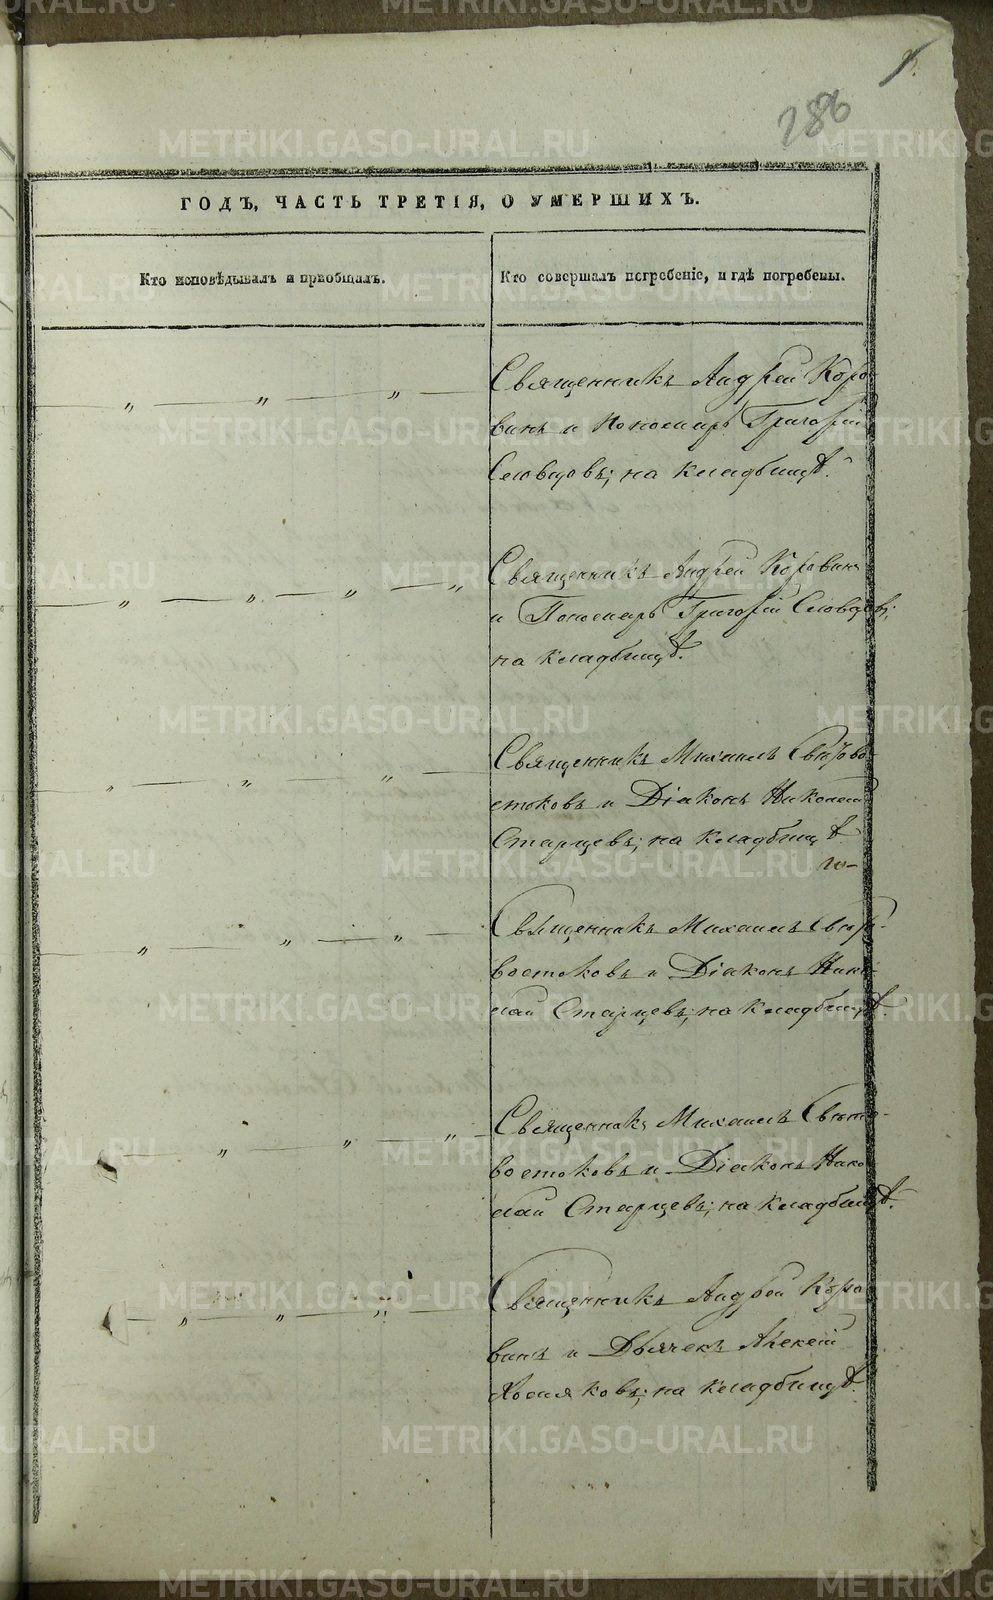 286
ГОДЪ, ЧАСТЬ ТРЕТІЯ, О УМЕРШИХЪ.
Кто исповѣдывалъ и пріобщалъ.
Кто совершалъ погребеніе, и гдѣ погребены.
Священникъ Андрей Коро-
винъ и Пономарь Григорій
Словцовъ; на кладбищѣ.
Священникъ Андрей Коровинъ
и Пономарь Григорій Словцовъ;
на кладбищѣ.
Священникъ Михаилъ Свѣтово-
стоковъ и Діаконъ Николай
Старцевъ; на кладбищѣ.
Священникъ Михаилъ Свѣто-
востоковъ и Діаконъ Нико-
лай Старцевъ; на кладбищѣ.
Священникъ Михаилъ Свѣто-
востоковъ и Діаконъ Нико-
лай Старцевъ; на кладбищѣ.
Священникъ Андрей Коро-
винъ и Дьячекъ Алексѣй
Хомяковъ; на кладбищѣ.
METRIKI.GASO-URAL.RU